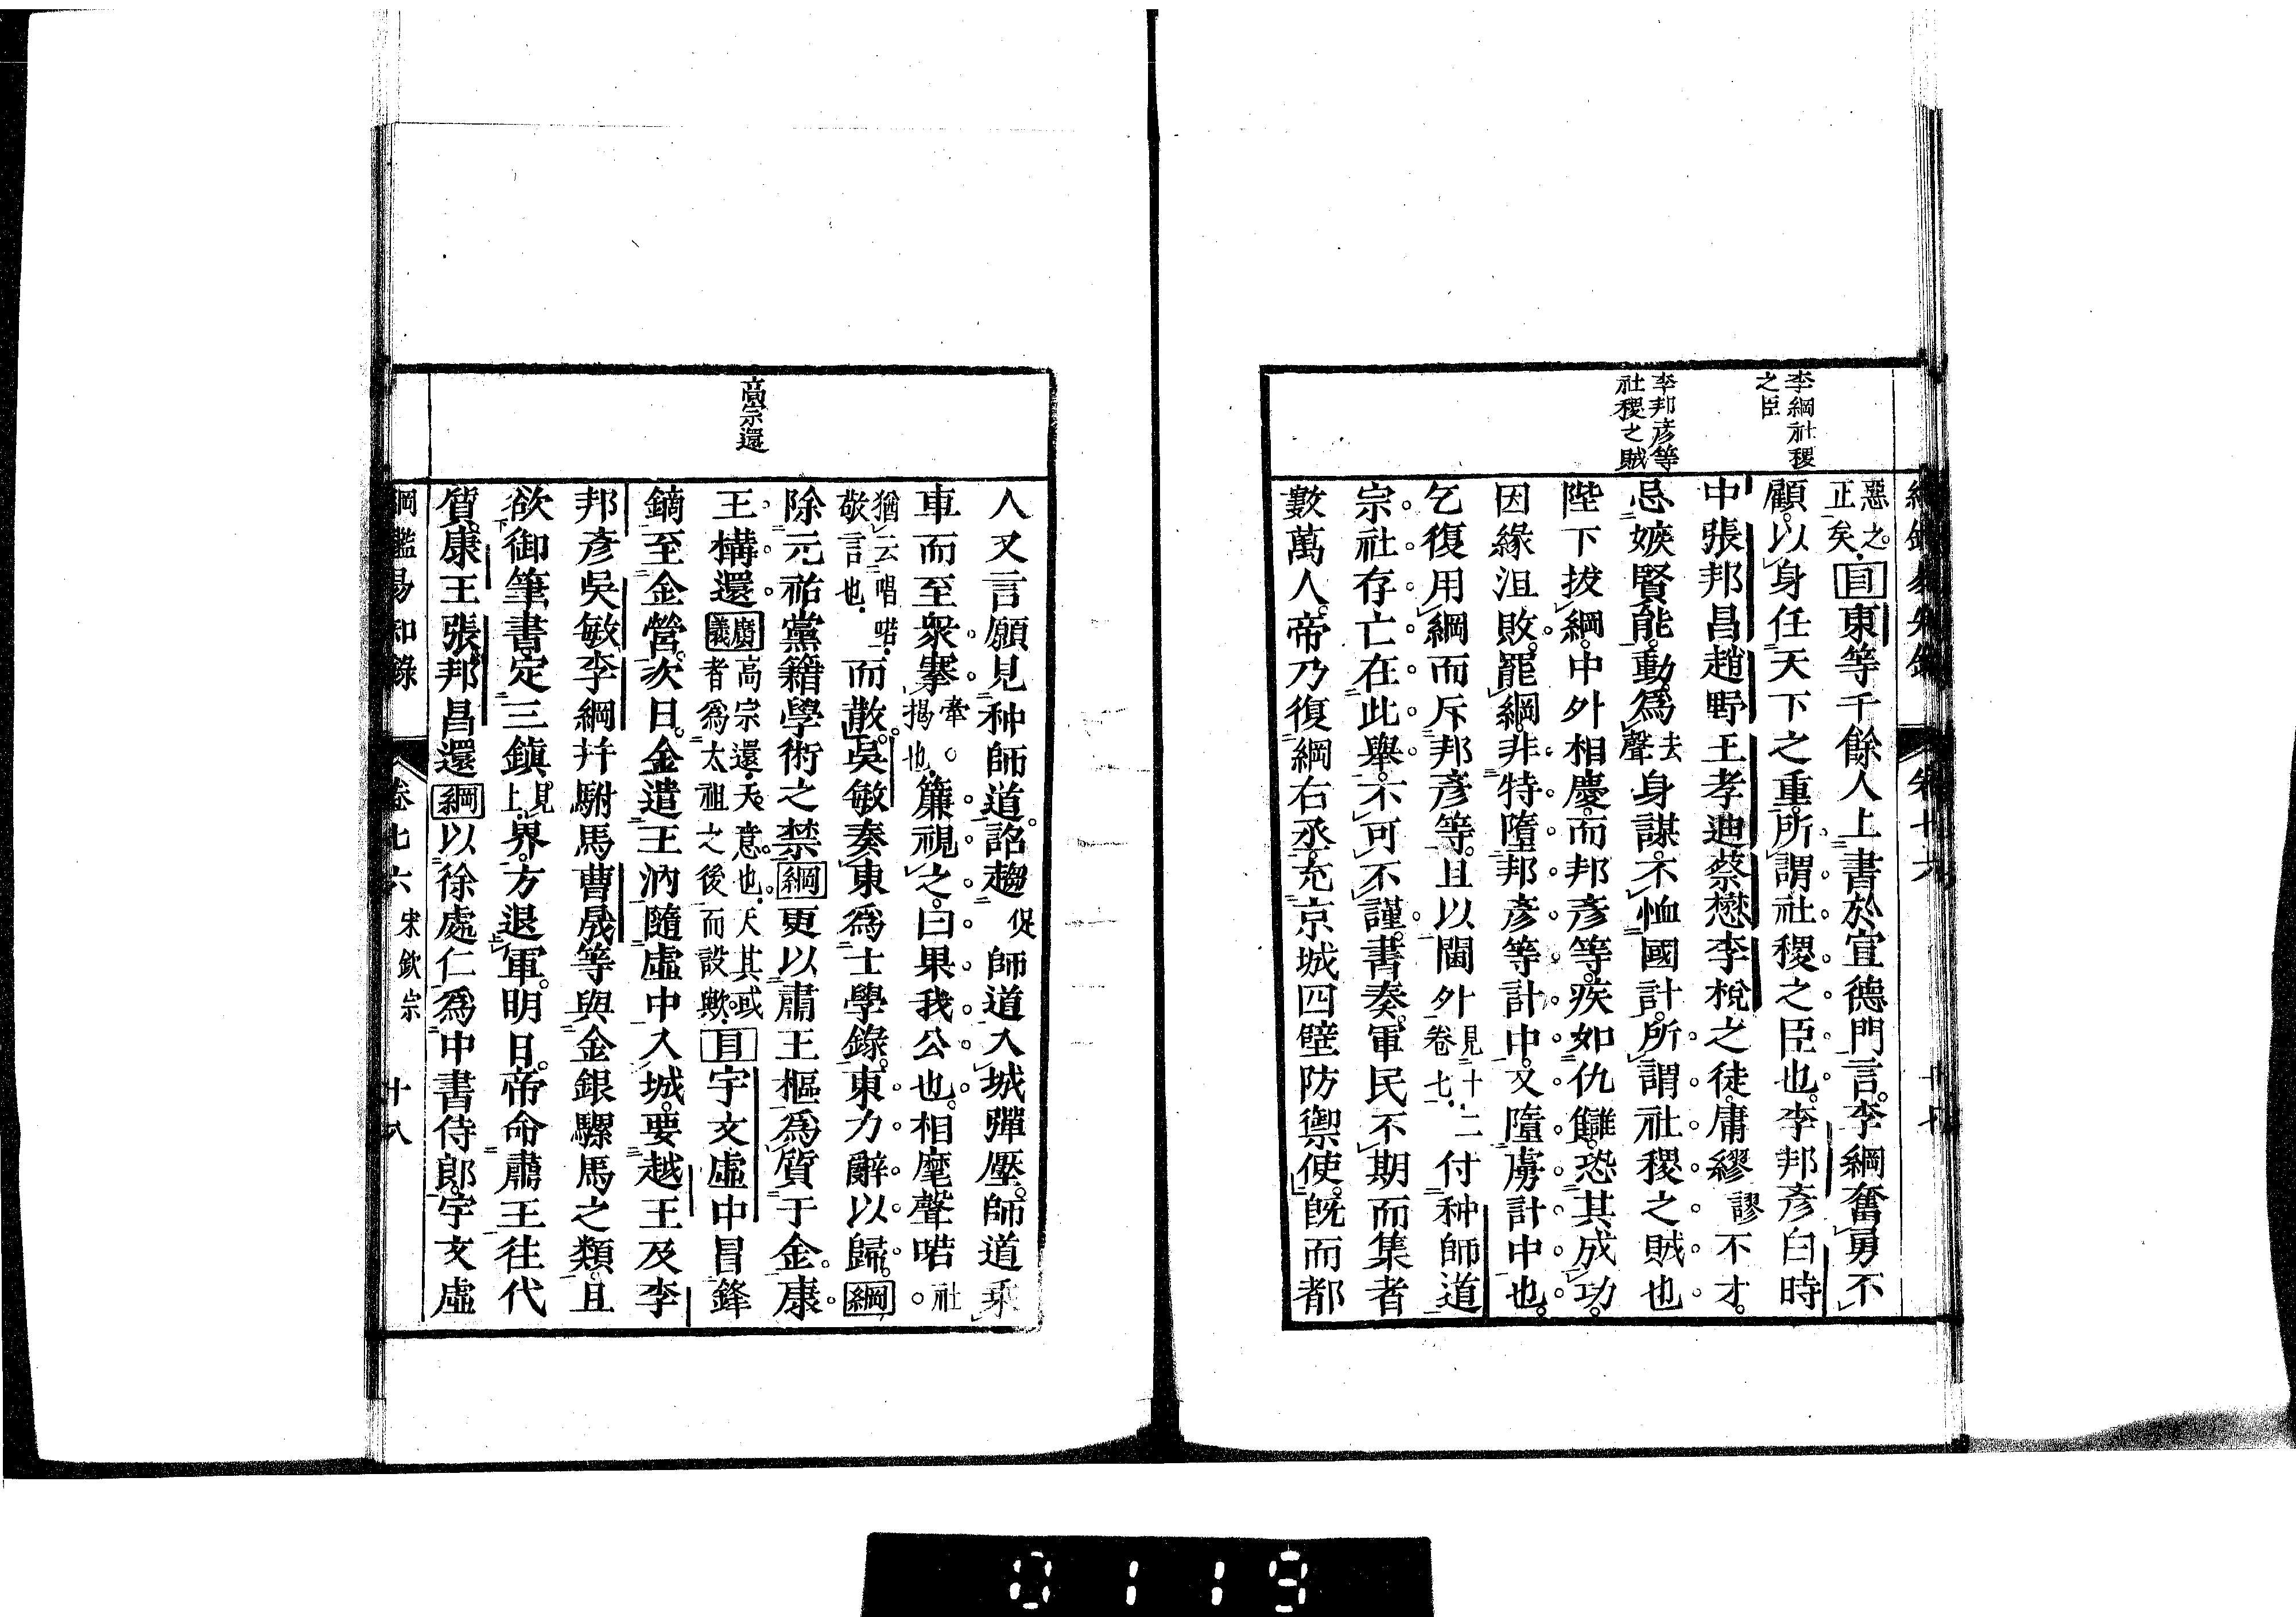 李綱社稷
之臣
李邦彥等
社稷之賊
惡之
正矣目東等千餘人上書於宣德門言李綱奮勇不
顧以身任天下之重所謂社稷之臣也李邦彥白時
中張邦昌趙野王孝迪蔡懋李梲之徒庸繆謬不才
忌嫉賢能動爲去聲身謀不恤國計所謂社稷之賊也
陛下拔綱中外相慶而邦彥等疾如仇讎恐其成功
因緣沮敗罷綱非特墮邦彥等計中又墮虜計中也
乞復用綱而斥邦彥等且以閫外見十二卷七付种師道
宗社存亡在此舉不可不謹書奏軍民不期而集者
數萬人帝乃復綱右丞充京城四壁防禦使既而都
高宗還
人又言願見种師道詔趨促師道入城彈壓師道乘
車而至衆搴牽揭也簾視之曰果我公也相麾聲喏社
猶云唱喏敬言也而散吳敏奏東爲士學錄東力辭以歸綱
除元祐黨籍學術之禁綱更以肅王樞爲質于金康
王構還廣義高宗還天意也天其或者爲太祖之後而設歟目宇文虛中冒鋒
鏑至金營次日金遣王汭隨虛中入城要越王及李
邦彥吳敏李綱幷駙馬曹晟等與金銀騾馬之類且
欲御筆書定三鎮見上界方退軍明日帝命肅王往代
質康王張邦昌還綱以徐處仁爲中書侍郎宇文虛
綱鑑易知錄 卷七六 宋欽宗 十八